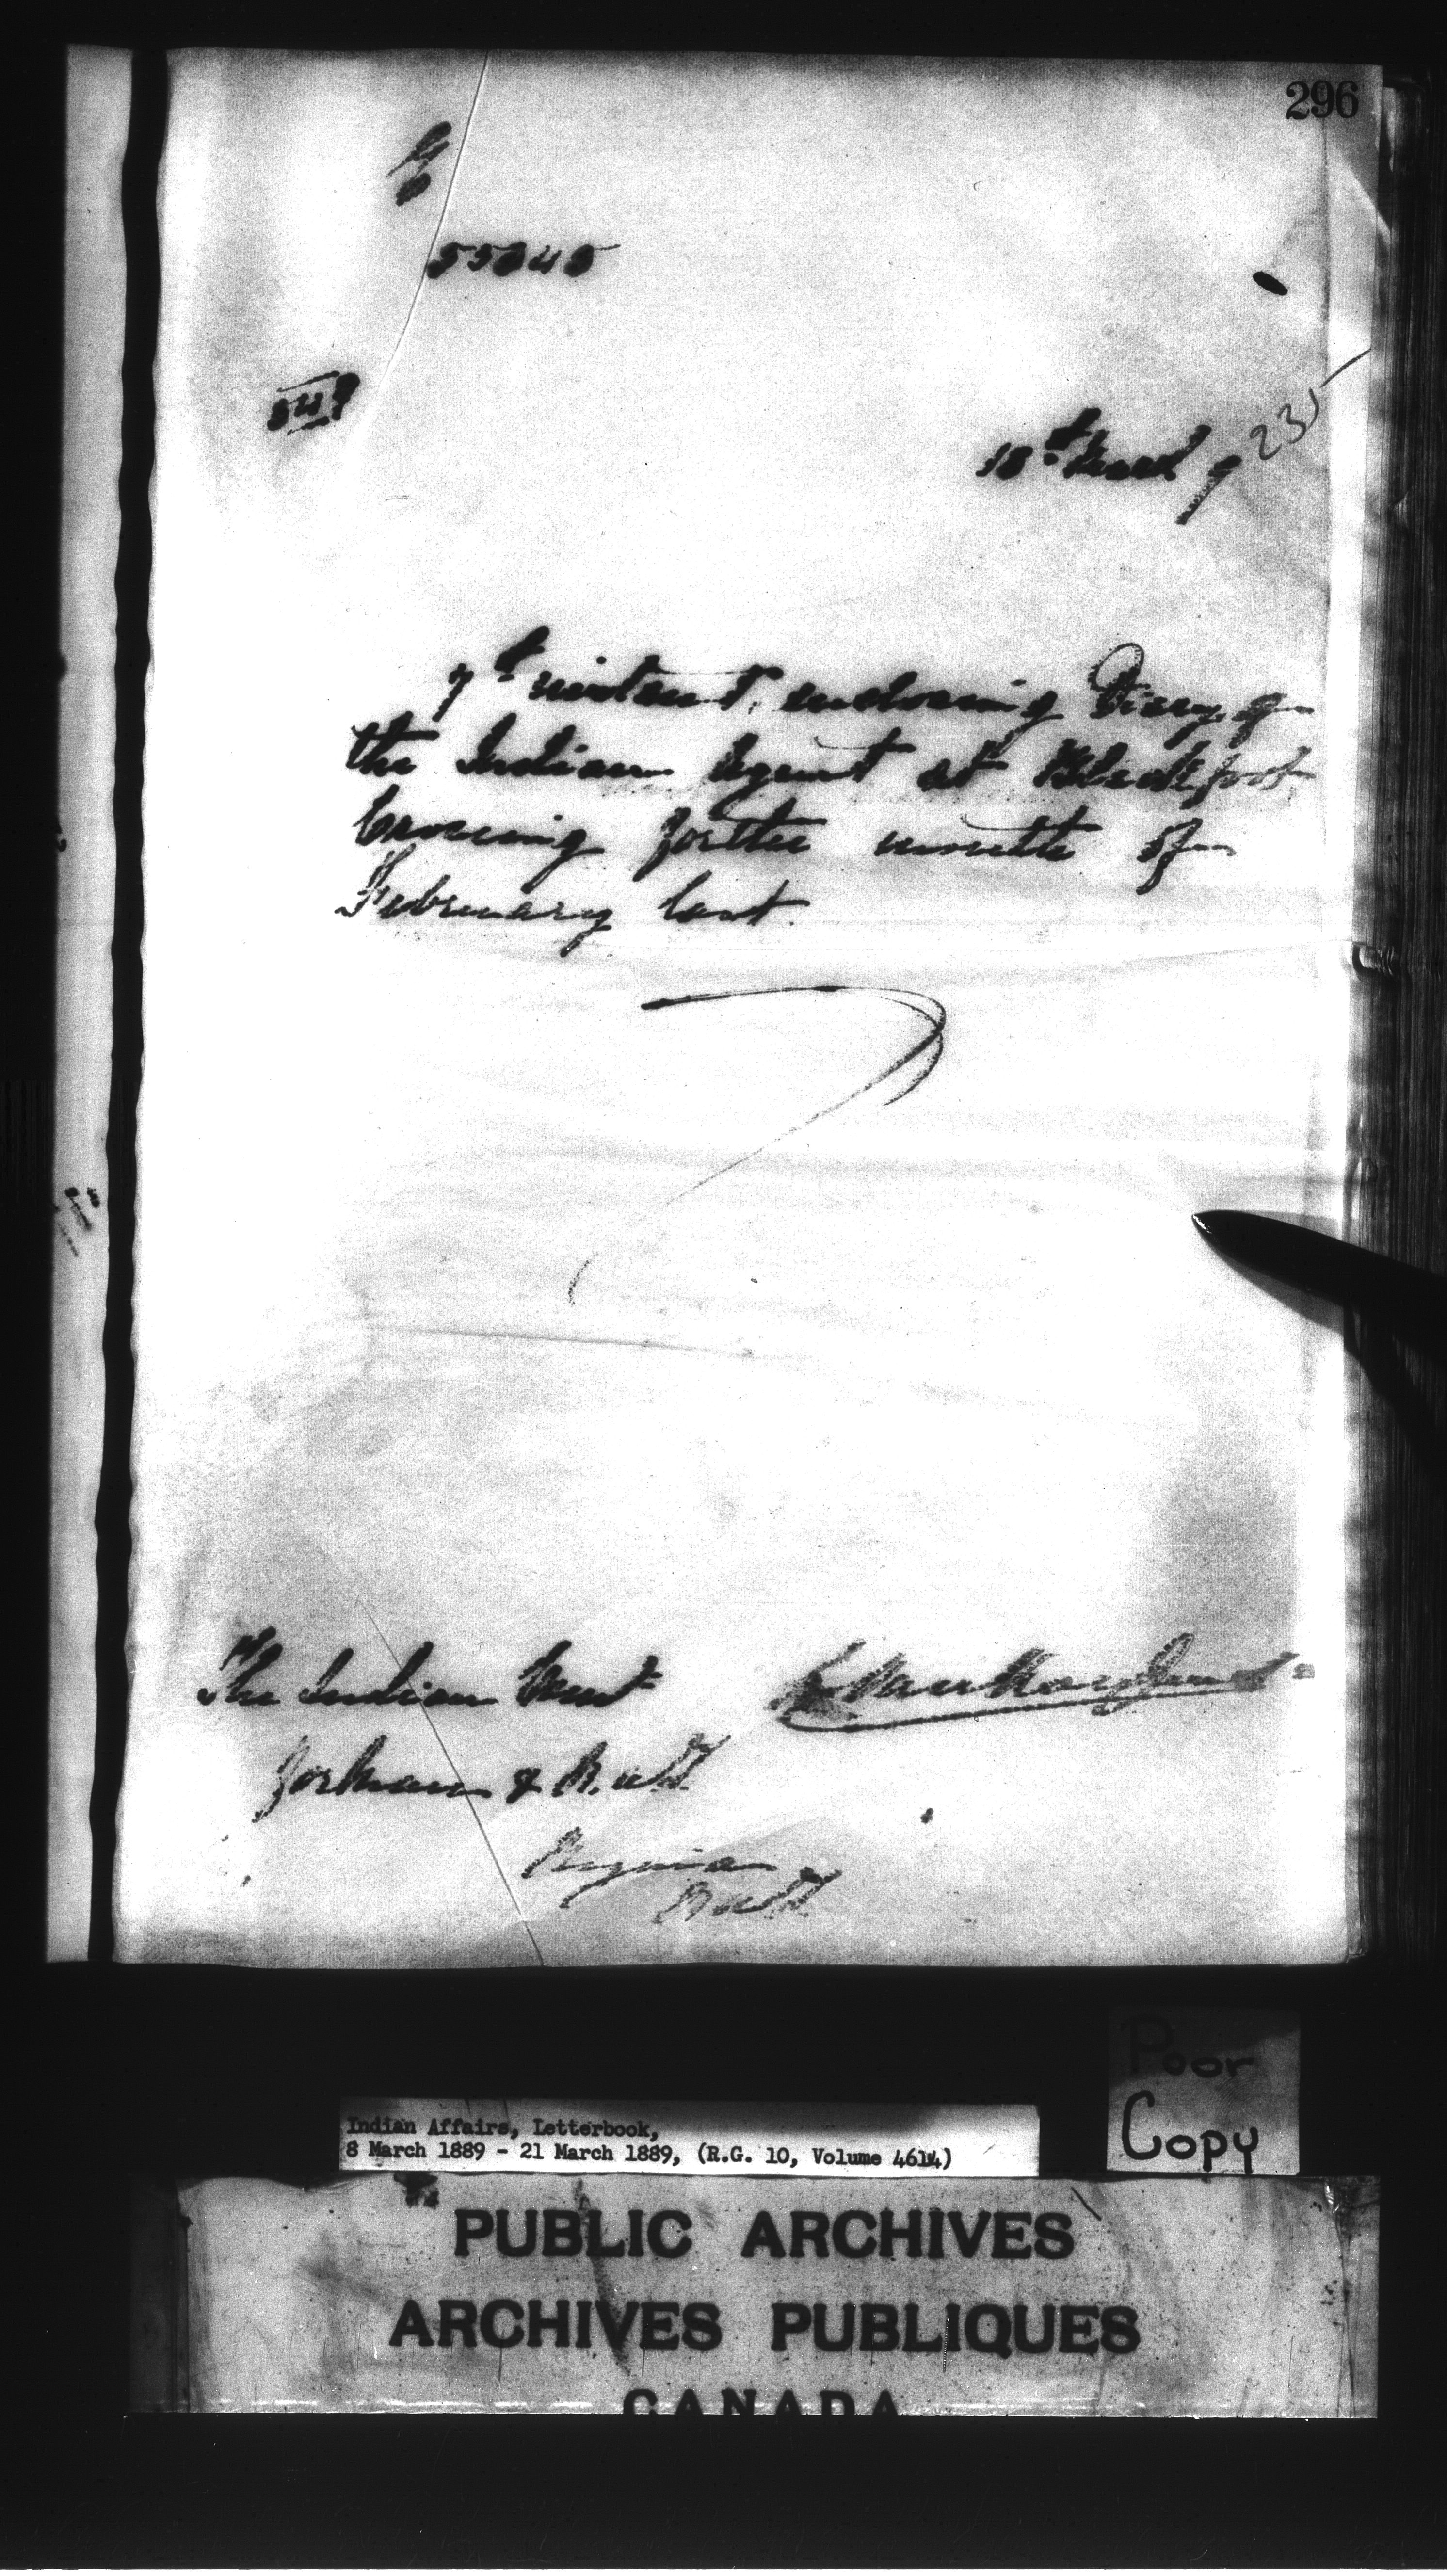 296
55045
547
235
18th March 9
7th instant, enclosing Diary of
the Indian Agent at Blackfoot
Crossing for the month of
February last.
The Indian Commr
for Man & N.W.T.
Regina
N.W.T.
L. VanKoughnet
Poor
Copy
Indian Affairs, Letterbook,
8 March 1889 - 21 March 1889, (R.G. 10, Volume 4614)
PUBLIC ARCHIVES
ARCHIVES PUBLIQUES
CANADA